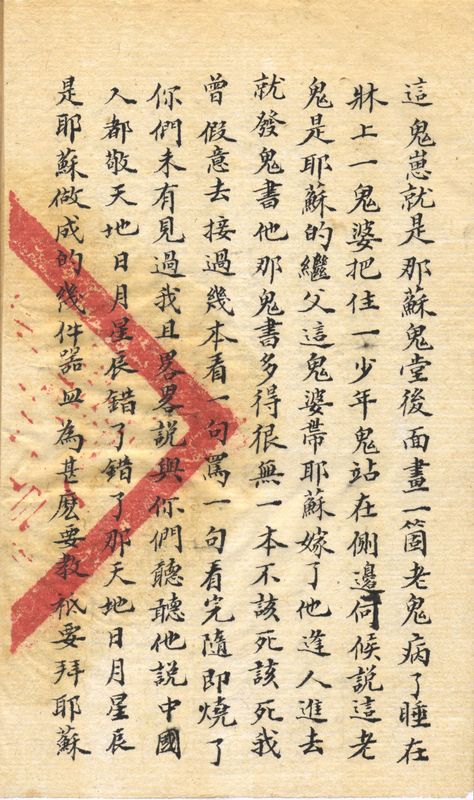 這鬼崽就是那蘇鬼堂後面畫一箇老鬼病了睡在
牀上一鬼婆把住一少年鬼站在側邊伺候說這老
鬼是耶蘇的繼父這鬼婆帶耶蘇嫁了他逢人進去
就發鬼書他那鬼書多得很無一本不該死該死我
曾假意去接過幾本看一句罵一句看完隨即燒了
你們未有見過我且畧畧說與你們聽聽他說中國
人都敬天地日月星辰錯了錯了那天地日月星辰
是耶蘇做成的幾件器皿為甚麼要敎祇要拜耶蘇